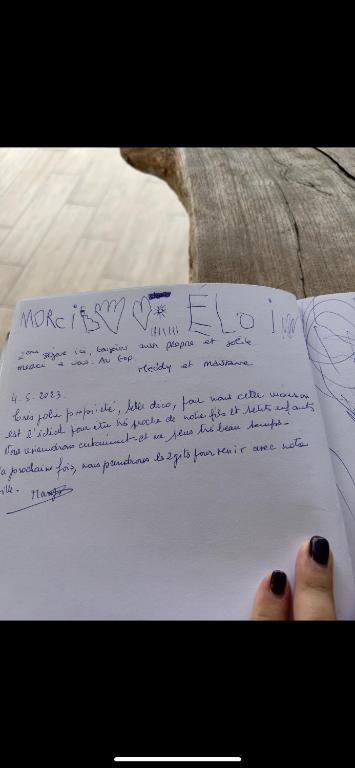 MERCi ELOi
2ème séjour ici, toujours aussi propre et
merci à vous. Au top.
Meddy et
4.5.2023.
Très jolie propriété, belle déco, pour nous cette maison
est l'idéal pour être très proche de notre fils et petits enfants
reviendrons certainement et en plus très beau temps.
la prochaine fois, nous prendrons les 2 gîts pour venir avec notre